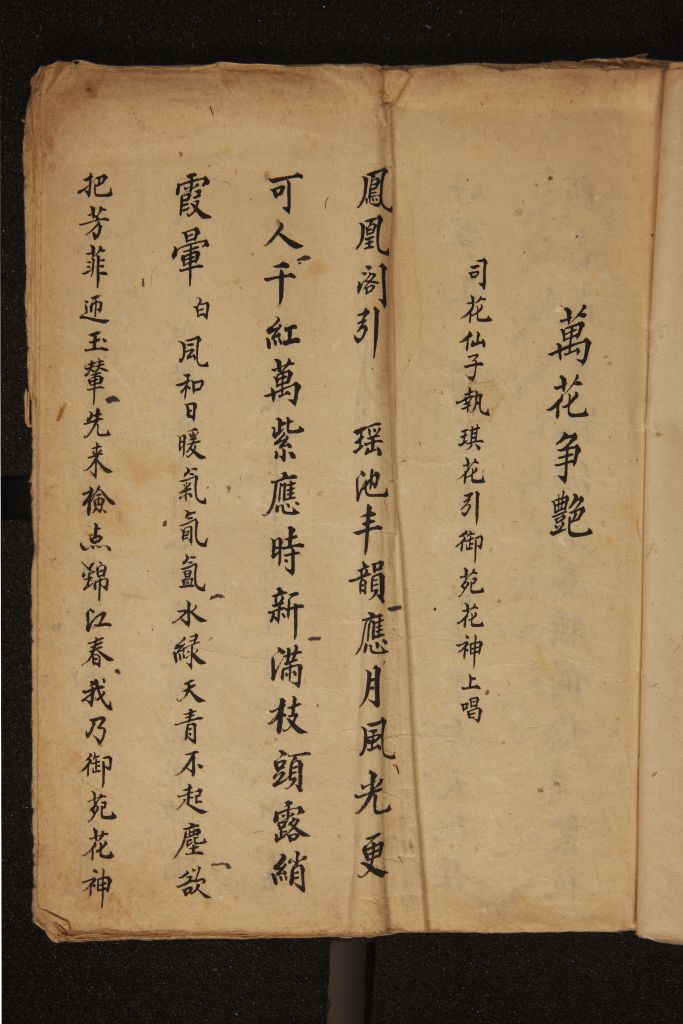 萬花争艷
司花仙子執琪花引御苑花神上唱
鳳凰阁引 瑶池丰韻應月風光更
可人千紅萬紫應時新滿枝頭露綃
霞暈 白 風和日暖氣氤氳水緑天青不起塵欲
把芳菲迊玉輦先来檢点錦江春我乃御苑花神